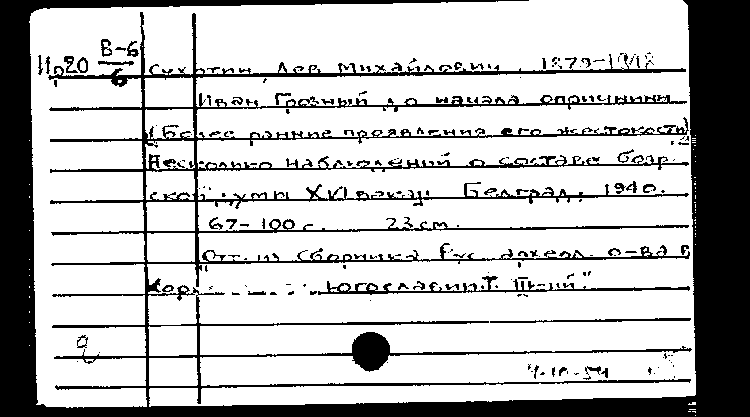 Ир20 В-6/6
Сухотин, Лев Михайлович, 1879-1948
Иван Грозный до начала опричнины
(Более ранние проявления его жестокости).
Несколько наблюдений о составе бояр-
ской думы XVI века. Белград, 1940.
67-100 с. 23 см.
"Отт. из Сборника Рус. археол. о-ва в
Кор. Югославии. Т. III-ий."